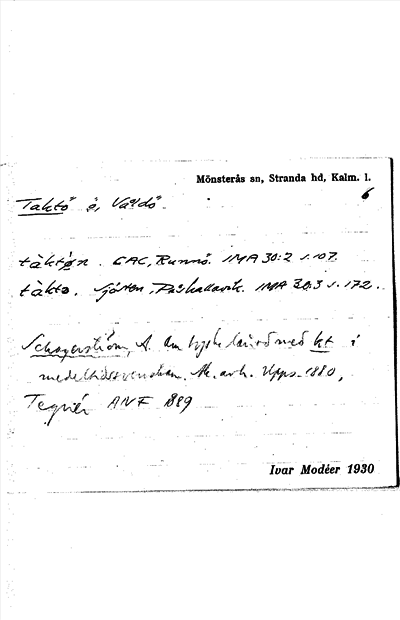 Mönsterås sn, Stranda hd, Kalm. l.
6
Taktö ö, Valdö.
tàktøn. CAC, Runnö. IMA 30:2 s. 107.
tàktə. Sjösten, Påskallavik. IMA 30:3 s. 172.
Schagerström, A. Om tyska lånord med kt i
medeltidssvenskan. Ak. avh. Upps. 1880,
Tegnér ANF 1889
Ivar Modéer 1930